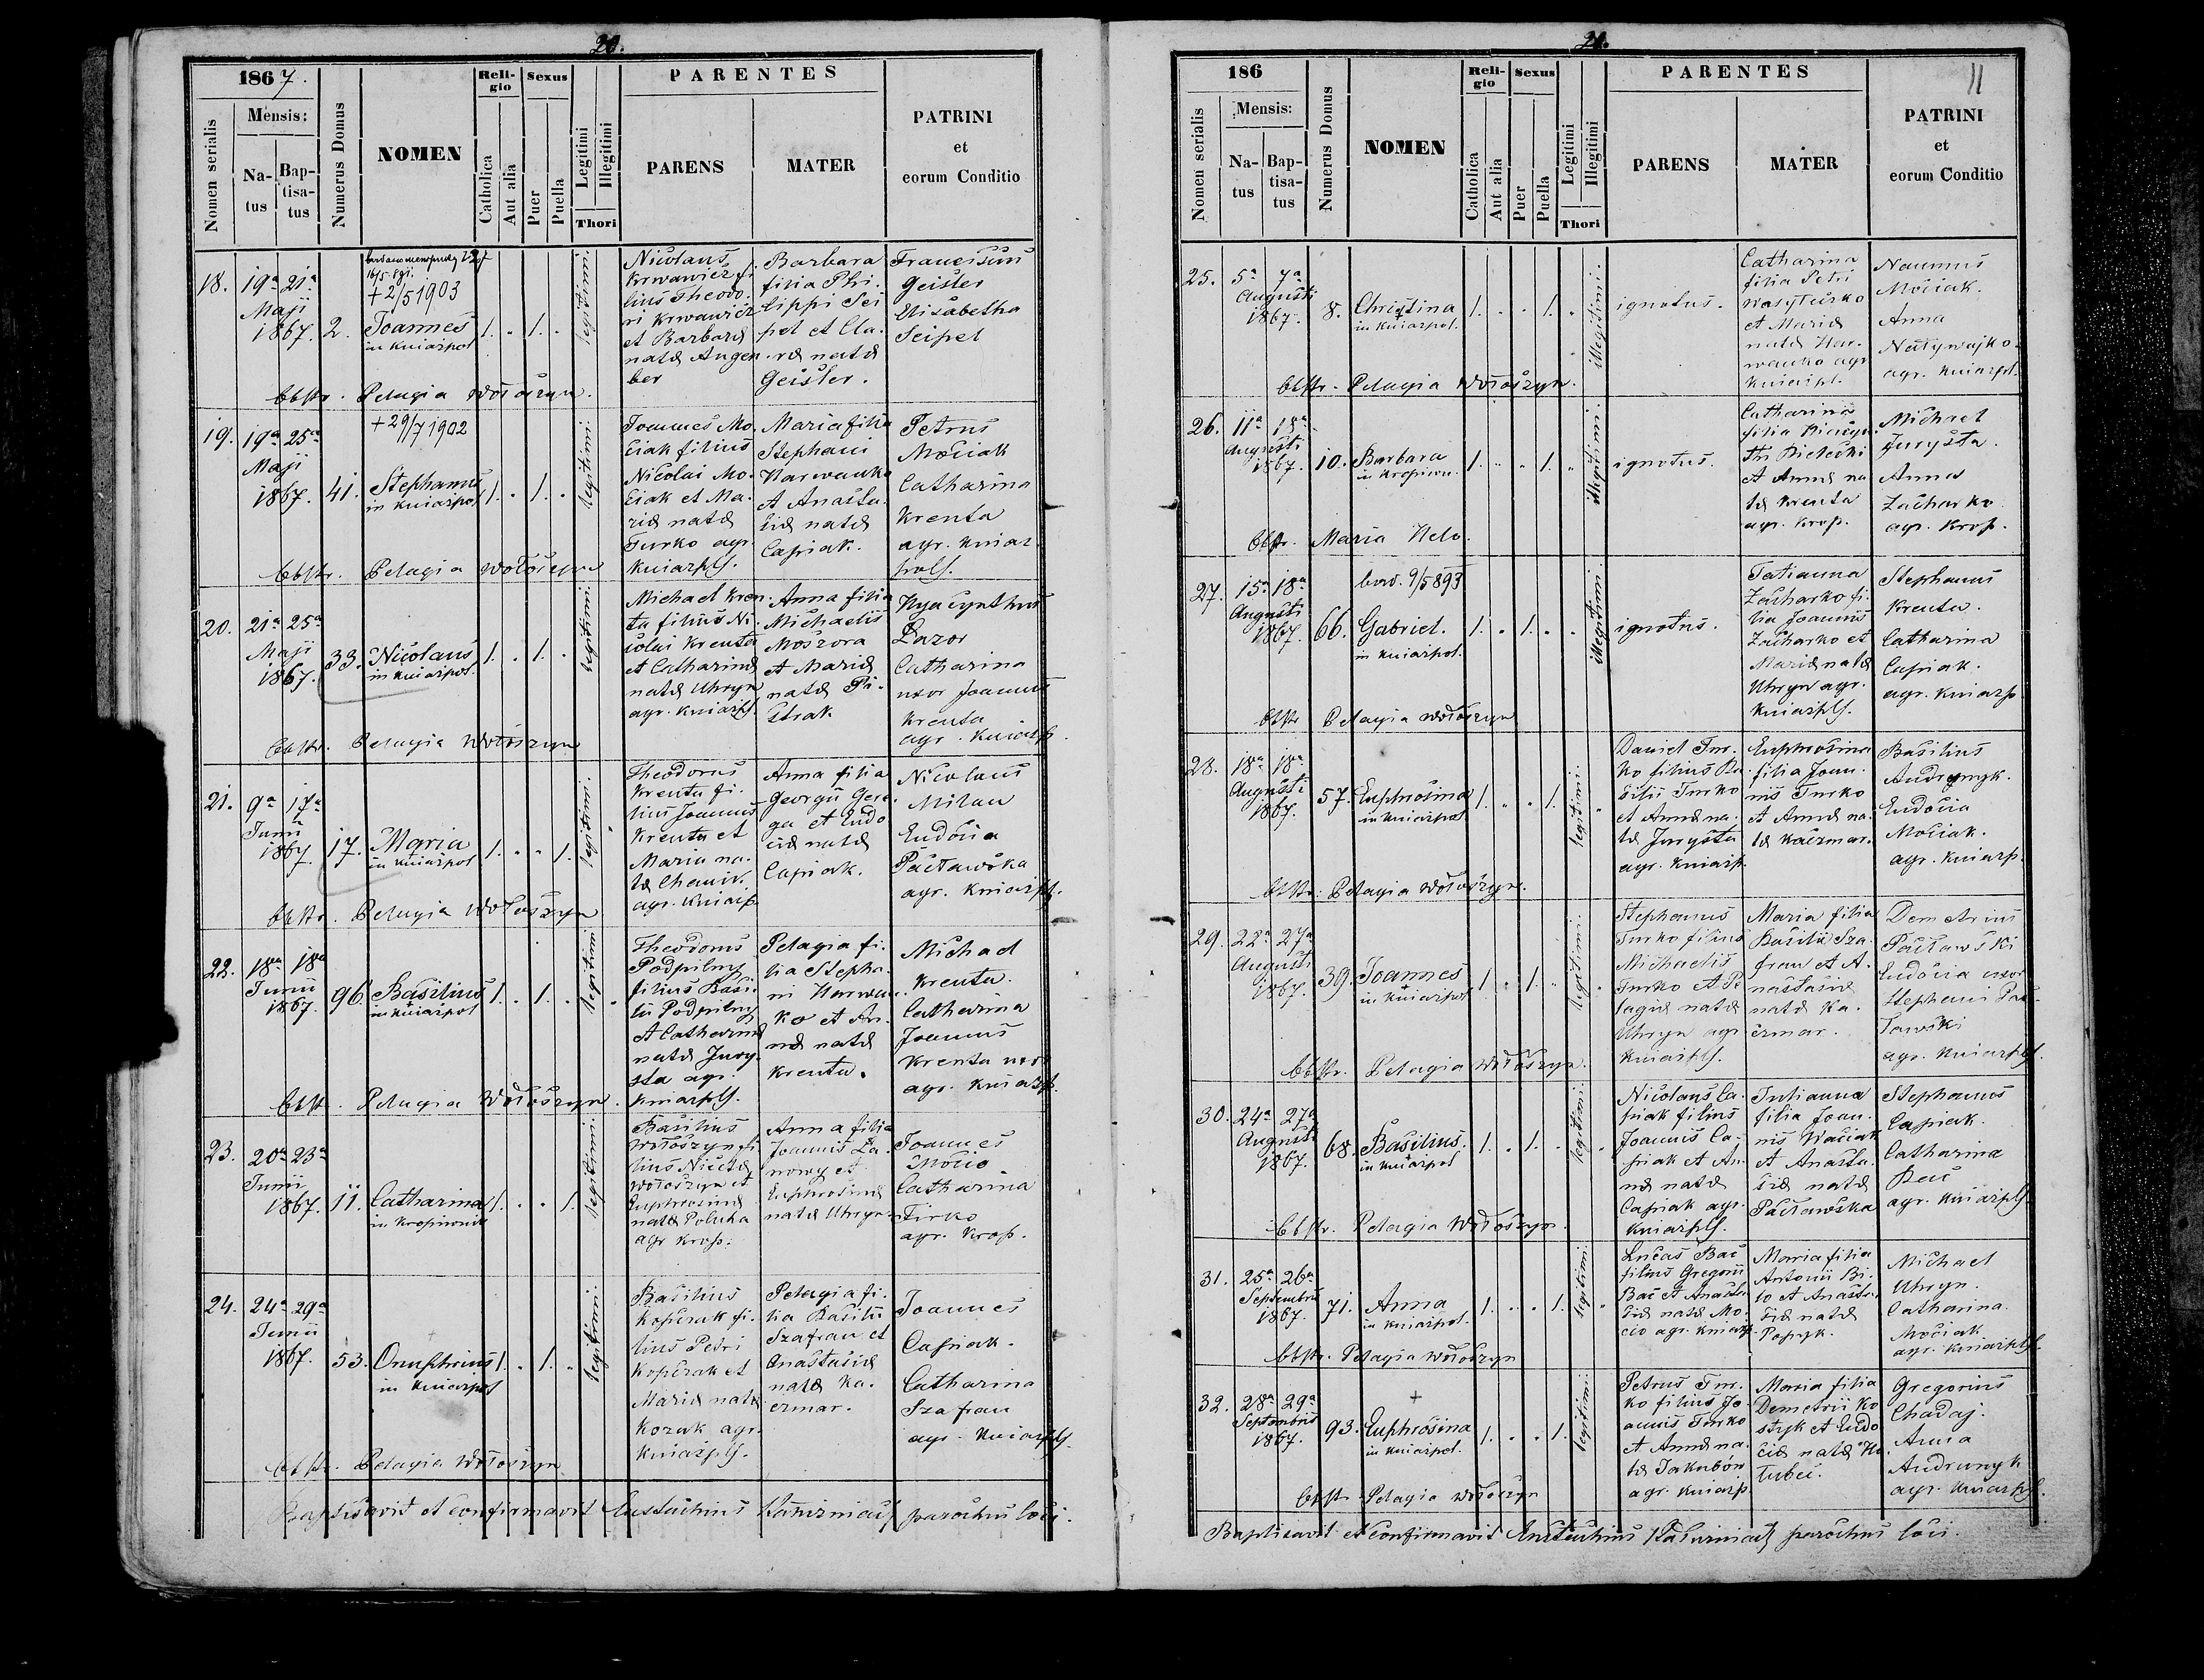 20.
1867.
Nomen serialis
Mensis:
Na-
tus
Bap-
tisa-
tus
Numerus Domus
NOMEN
Reli-
gio
Catholica
Aut alia
Sexus
Puer
Puella
Legitimi
Illegitimi
Thori
PARENTES
PARENS
MATER
PATRINI
et
eorum Conditio
18.
19a 21a
Maji
1867.
2.
16/5
+ 2/5 1903
Joannes
in Kniaźpol
1. " 1. "
legitimi.
Nicolaus
Krwawicz fi-
lius Theodo-
ri Krwawicz
et Barbara
nata Angen
ber
Barbara
filia Phi-
lippi Sei
pel et Cla-
ra nata
Geisler.
Franciscus
Geisler
Elisabetha
Seipel
Obstr. Pelagia Wołoszyn.
19.
19a 25a
Maji
1867.
41.
+ 29/7 1902
Stephanus
in Kniaźpol
1. " 1. "
legitimi.
Joannes Mo-
ciak filius
Nicolai Mo-
ciak et Ma-
ria nata
Turko agr.
Kniaźpls.
Maria filia
Stephani
Harwanko
et Anasta-
sia nata
Capiak.
Petrus
Mociak
Catharina
Krenta
agr. Kniaź
pols.
Obstr. Pelagia Wołoszyn
20.
21a 25a
Maji
1867.
33.
Nicolaus
in Kniaźpol.
1. " 1. "
legitimi.
Michael Kren-
ta filius Ni-
colai Krenta
et Catharina
nata Uhryn
agr. Kniaźpls.
Anna filia
Michaelis
Moszora
et Maria
nata Pi-
strak
Hyacynthus
Lazor
Catharina
uxor Joannis
Krenta
agr. Kniaźp.
Obstr. Pelagia Wołoszyn
21.
9a 17a
Junii
1867
17.
Maria
in Kniaźpol
1. " " 1.
legitimi.
Theodorus
Krenta fi-
lius Joannis
Krenta et
Maria na-
ta
agr. Kniaźp
Anna filia
Georgii Gere-
ga et Eudo
cia nata
Capiak.
Nicolaus
Milan
Eudocia
Pacławska
agr. Kniaźpl.
Obstr. Pelagia Wołoszyn
22.
18va 18va
Junii
1867.
96.
Basilius
in Kniaźpol
1. " 1. "
legitimi
Theodorus
Podpilny
filius Basi-
lii Podpilny
et Catharina
nata Jury-
sta agr.
Kniaźpls.
Pelagia fi-
lia Stepha-
ni Harwan-
ko et An-
na nata
Krenta.
Michael
Krenta.
Catharina
Joannis
Krenta uxor
agr. Kniaźp.
Obstr. Pelagia Wołoszyn.
23.
20a 23a
Junii
1867.
11.
Catharina
in Kropiwnik
1. " " 1.
legitimi.
Basilius
Wołoszyn fi-
lius Niceta
Wołoszyn et
Euphrosina
nata Polucha
agr Krop.
Anna filia
Joannis La-
nowy et
Euphrosina
nata Uhryn.
Joannes
Mocio.
Catharina
Tirko
agr. Krop.
24.
24a 29a
Junii
1867.
53.
Onuphrius
in Kniaźpol
1. " 1. "
legitimi.
Basilius
Kopczak fi-
lius Petri
Kopczak et
Maria nata
Kozak agr.
Kniaźpls.
Pelagia fi-
lia Basilii
Szafran et
Anastasia
nata Ka-
czmar.
Joannes
Capiak.
Catharina
Szafran
agr. Kniaźpls.
Obstr. Pelagia Wołoszyn
Baptisavit et Confirmavit Eustachius parochus loci.
21.
11
186
Nomen serialis
Mensis:
Na-
tus
Bap-
tisa-
tus
Numerus Domus
NOMEN
Reli-
gio
Catholica
Aut alia
Sexus
Puer
Puella
Legitimi
Illegitimi
Thori
PARENTES
PARENS
MATER
PATRINI
et
eorum Conditio
25.
5a 7a
Augusti
1867.
8.
Christina
in Kniaźpol.
1. " " 1.
illegitimi.
ignotus.
Catharina
filia Petri
Wasylečko
et Maria
nata Har-
wanko agr
Kniaźpl.
Naumus
Mociak.
Anna
Natywajko.
agr. Kniaźpl.
Obstr. Pelagia Wołoszyn.
26.
11a 18a
Augusti
1867.
10.
Barbara
in Kropiwn.
1. " " 1.
illegitimi.
ignotus.
Catharina
filia
Bielecki
et Anna na
ta Krenta
agr. Krop.
Michael
Jurysta.
Anna
Zacharko
agr. Krop.
Obstr. Maria
27.
15a 18a
Augusti
1867
66.
9/5 893
Gabriel.
in Kniaźpol.
1. " 1. "
illegitimi.
ignotus.
Tatianna
Zacharko fi-
lia Joannis
Zacharko et
Maria nata
Uhryn agr.
Kniaźpls.
Stephanus
Krenta.
Catharina
Capiak.
agr. Kniaźp
Obstr Pelagia Wołoszyn
28.
18a 18a
Augusti
1867.
57.
Euphrosina
in Kniaźpol
1. " " 1.
legitimi.
Daniel Tur-
ko filius Ba-
silii Turko
et Anna na-
ta Jurysta
agr. Kniaźp.
Euphrosina
filia Joan-
nis Turko
et Anna na-
ta Kaczmar.
Basilius
Andrynyk.
Eudocia
Mociak.
agr. Kniaźp.
Obstr. Pelagia Wołoszyn.
29.
22a 27a
Augusti
1867.
39.
Joannes
in Kniaźpol
1. " 1. "
legitimi.
Stephanus
Turko filius
Michaelis
Turko et Pe
lagia nata
Uhryn agr
Kniaźpls.
Maria filia
Basilii Sza-
fran et A-
nastasia
nata Ka-
czmar.
Demetrius
Pacławski
Eudocia uxor
Stephani Pac-
ławski
agr. Kniaźpls.
Obstr. Pelagia Wołoszyn.
30.
24a 27a
Augusti
1867.
68.
Basilius.
in Kniaźpol
1. " 1. "
legitimi.
Nicolaus Ca-
piak filius
Joannis Ca-
piak et An-
na nata
Capiak agr.
Kniaźpls.
Julianna
filia Joan-
nis Waciak
et Anasta-
sia nata
Pacławska
Stephanus
Capiak.
Catharina
Bac
agr. Kniaźpls.
Obstr. Pelagia Wołoszyn.
31.
25a 26a
Septembris
1867.
71.
Anna
in Kniaźpol.
1. " " 1.
legitimi.
Lucas Bac
filius Gregorii
Bac et Anasta
sia nata Mo-
cio agr. Kniaźp
Maria filia
Antonii Bi-
lo et Anasta-
sia nata
Popyk.
Michael
Uhryn.
Catharina
Mociak
agr. Kniaźpls.
Obstr. Pelagia Wołoszyn
32.
28a 29a
Septembris
1867.
93.
+
Euphrosina
in Kniaźpol.
1. " " 1.
legitimi.
Petrus Tur-
ko filius Jo-
annis Turko
et Anna na-
ta Jakubów
agr. Kniaźp.
Maria filia
Demetrii Ko
styk et Eudo
cia nata Ho-
lubec.
Gregorius
Chadaj.
Anna
Andrunyk
agr. Kniaźpls.
Obstr. Pelagia Wołoszyn
Baptisavit et Confirmavit Eustachius parochus loci.